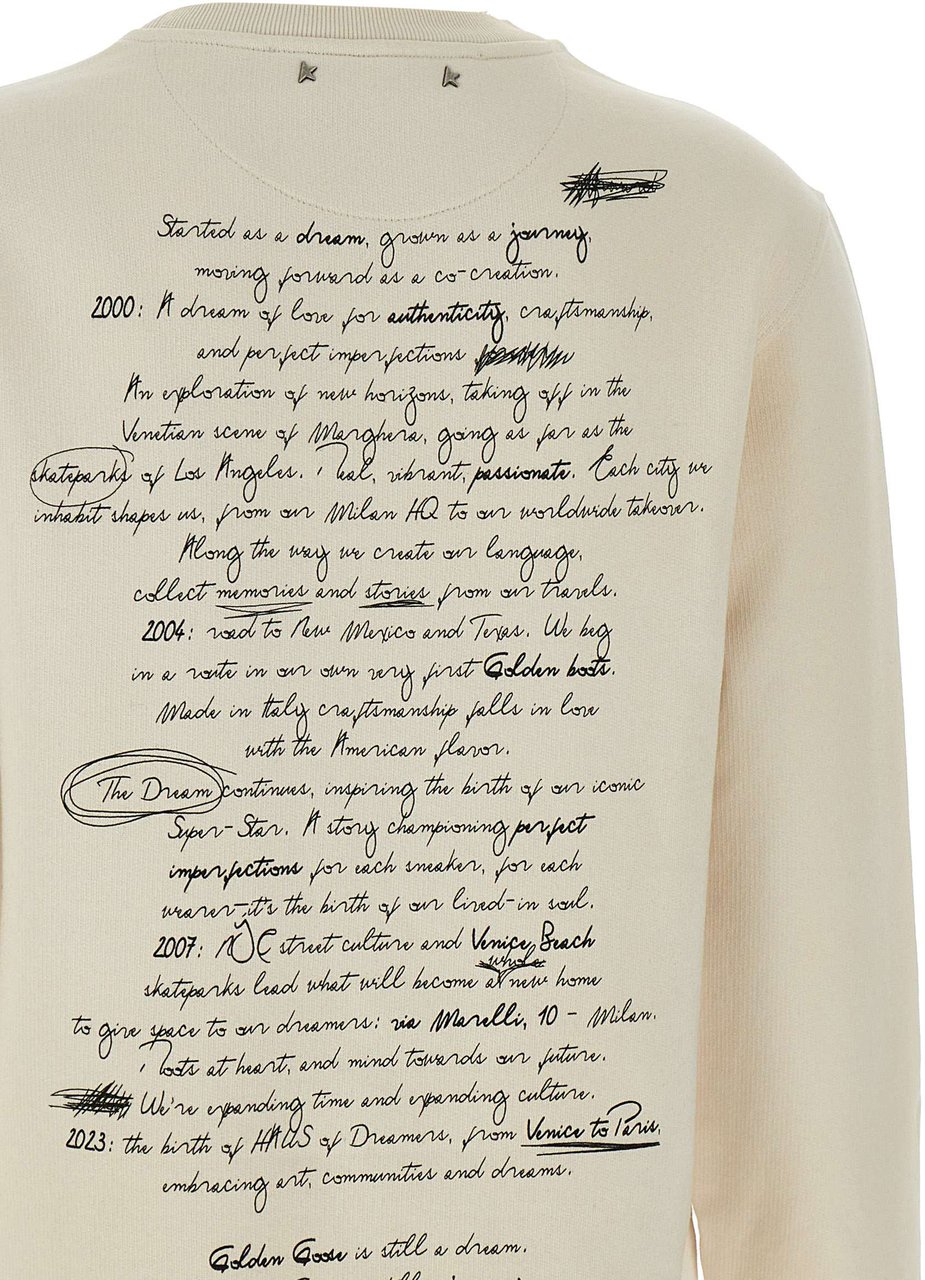 Started as a dream, grown as a journey,
moving forward as a co-creation.
2000: A dream of love for authenticity, craftsmanship,
and perfect imperfections
An exploration of new horizons, taking off in the
Venetian scene of Marghera, going as far as the
skateparks of Los Angeles. Real, vibrant, passionate. Each city we
inhabit shapes us, from our Milan HQ to our worldwide takeover.
Along the way we create our language,
collect memories and stories from our travels.
2004: road to New Mexico and Texas. We beg
in a route in our own very first Golden boots.
Made in Italy craftsmanship falls in love
with the American flavor.
The Dream continues, inspiring the birth of our iconic
Super-Star. A story championing perfect
imperfections for each sneaker, for each
wearer-it's the birth of our lived-in soul.
2007: NYC street culture and Venice Beach
whole
skateparks lead what will become a new home
to give space to our dreamers: via Marelli, 10 - Milan.
Roots at heart, and mind towards our future.
We're expanding time and expanding culture.
2023: the birth of HAUS of Dreamers, from Venice to Paris,
embracing art, communities and dreams.
Golden Goose is still a dream.